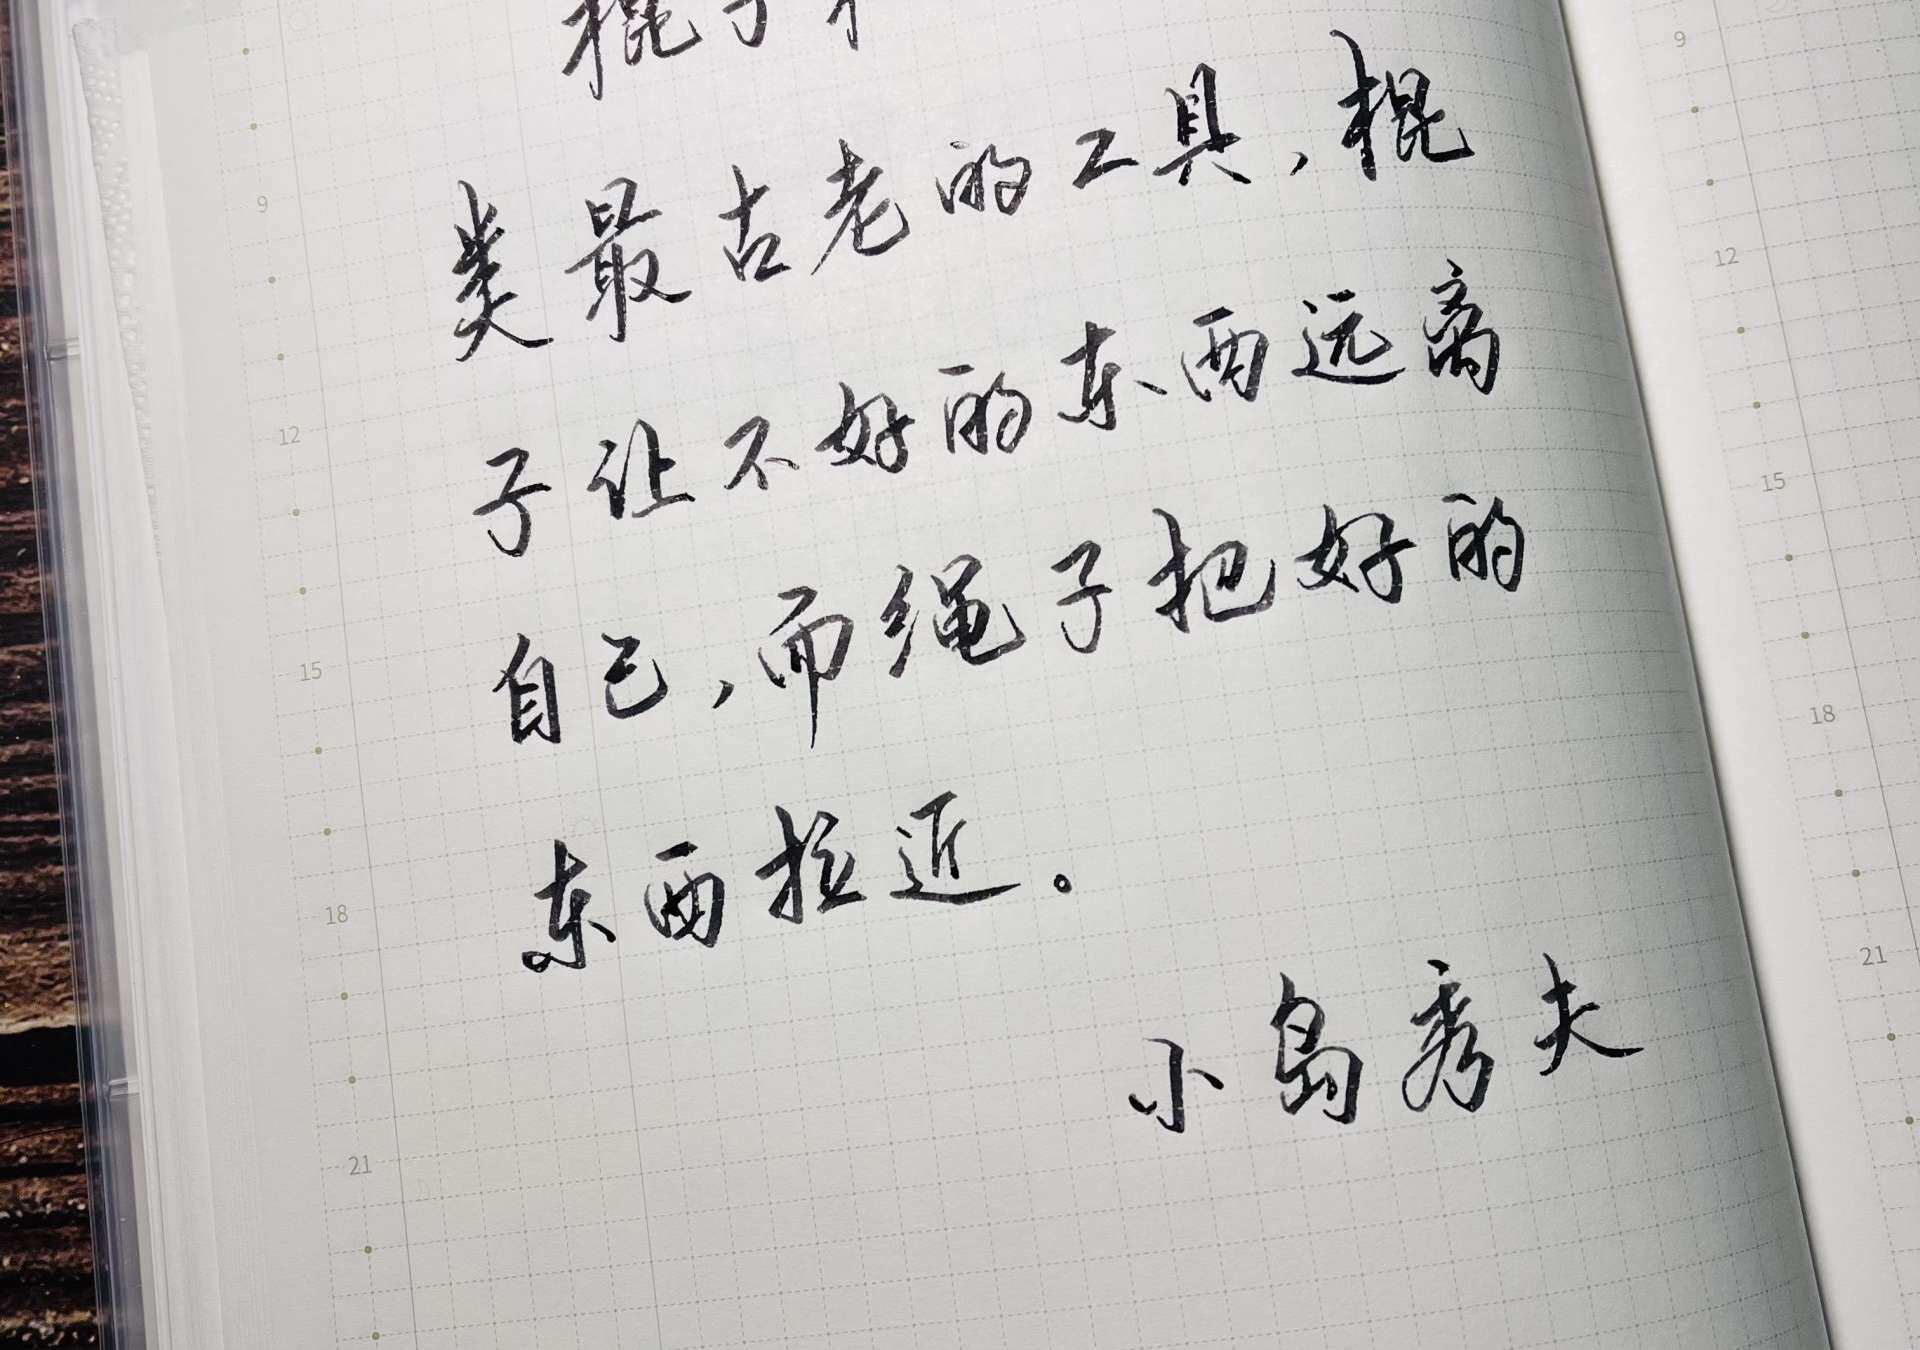 棍子
类最古老的工具，棍
子让不好的东西远离
自己，而绳子把好的
东西拉近。
小岛秀夫
9
12
15
18
21
9
12
15
18
21